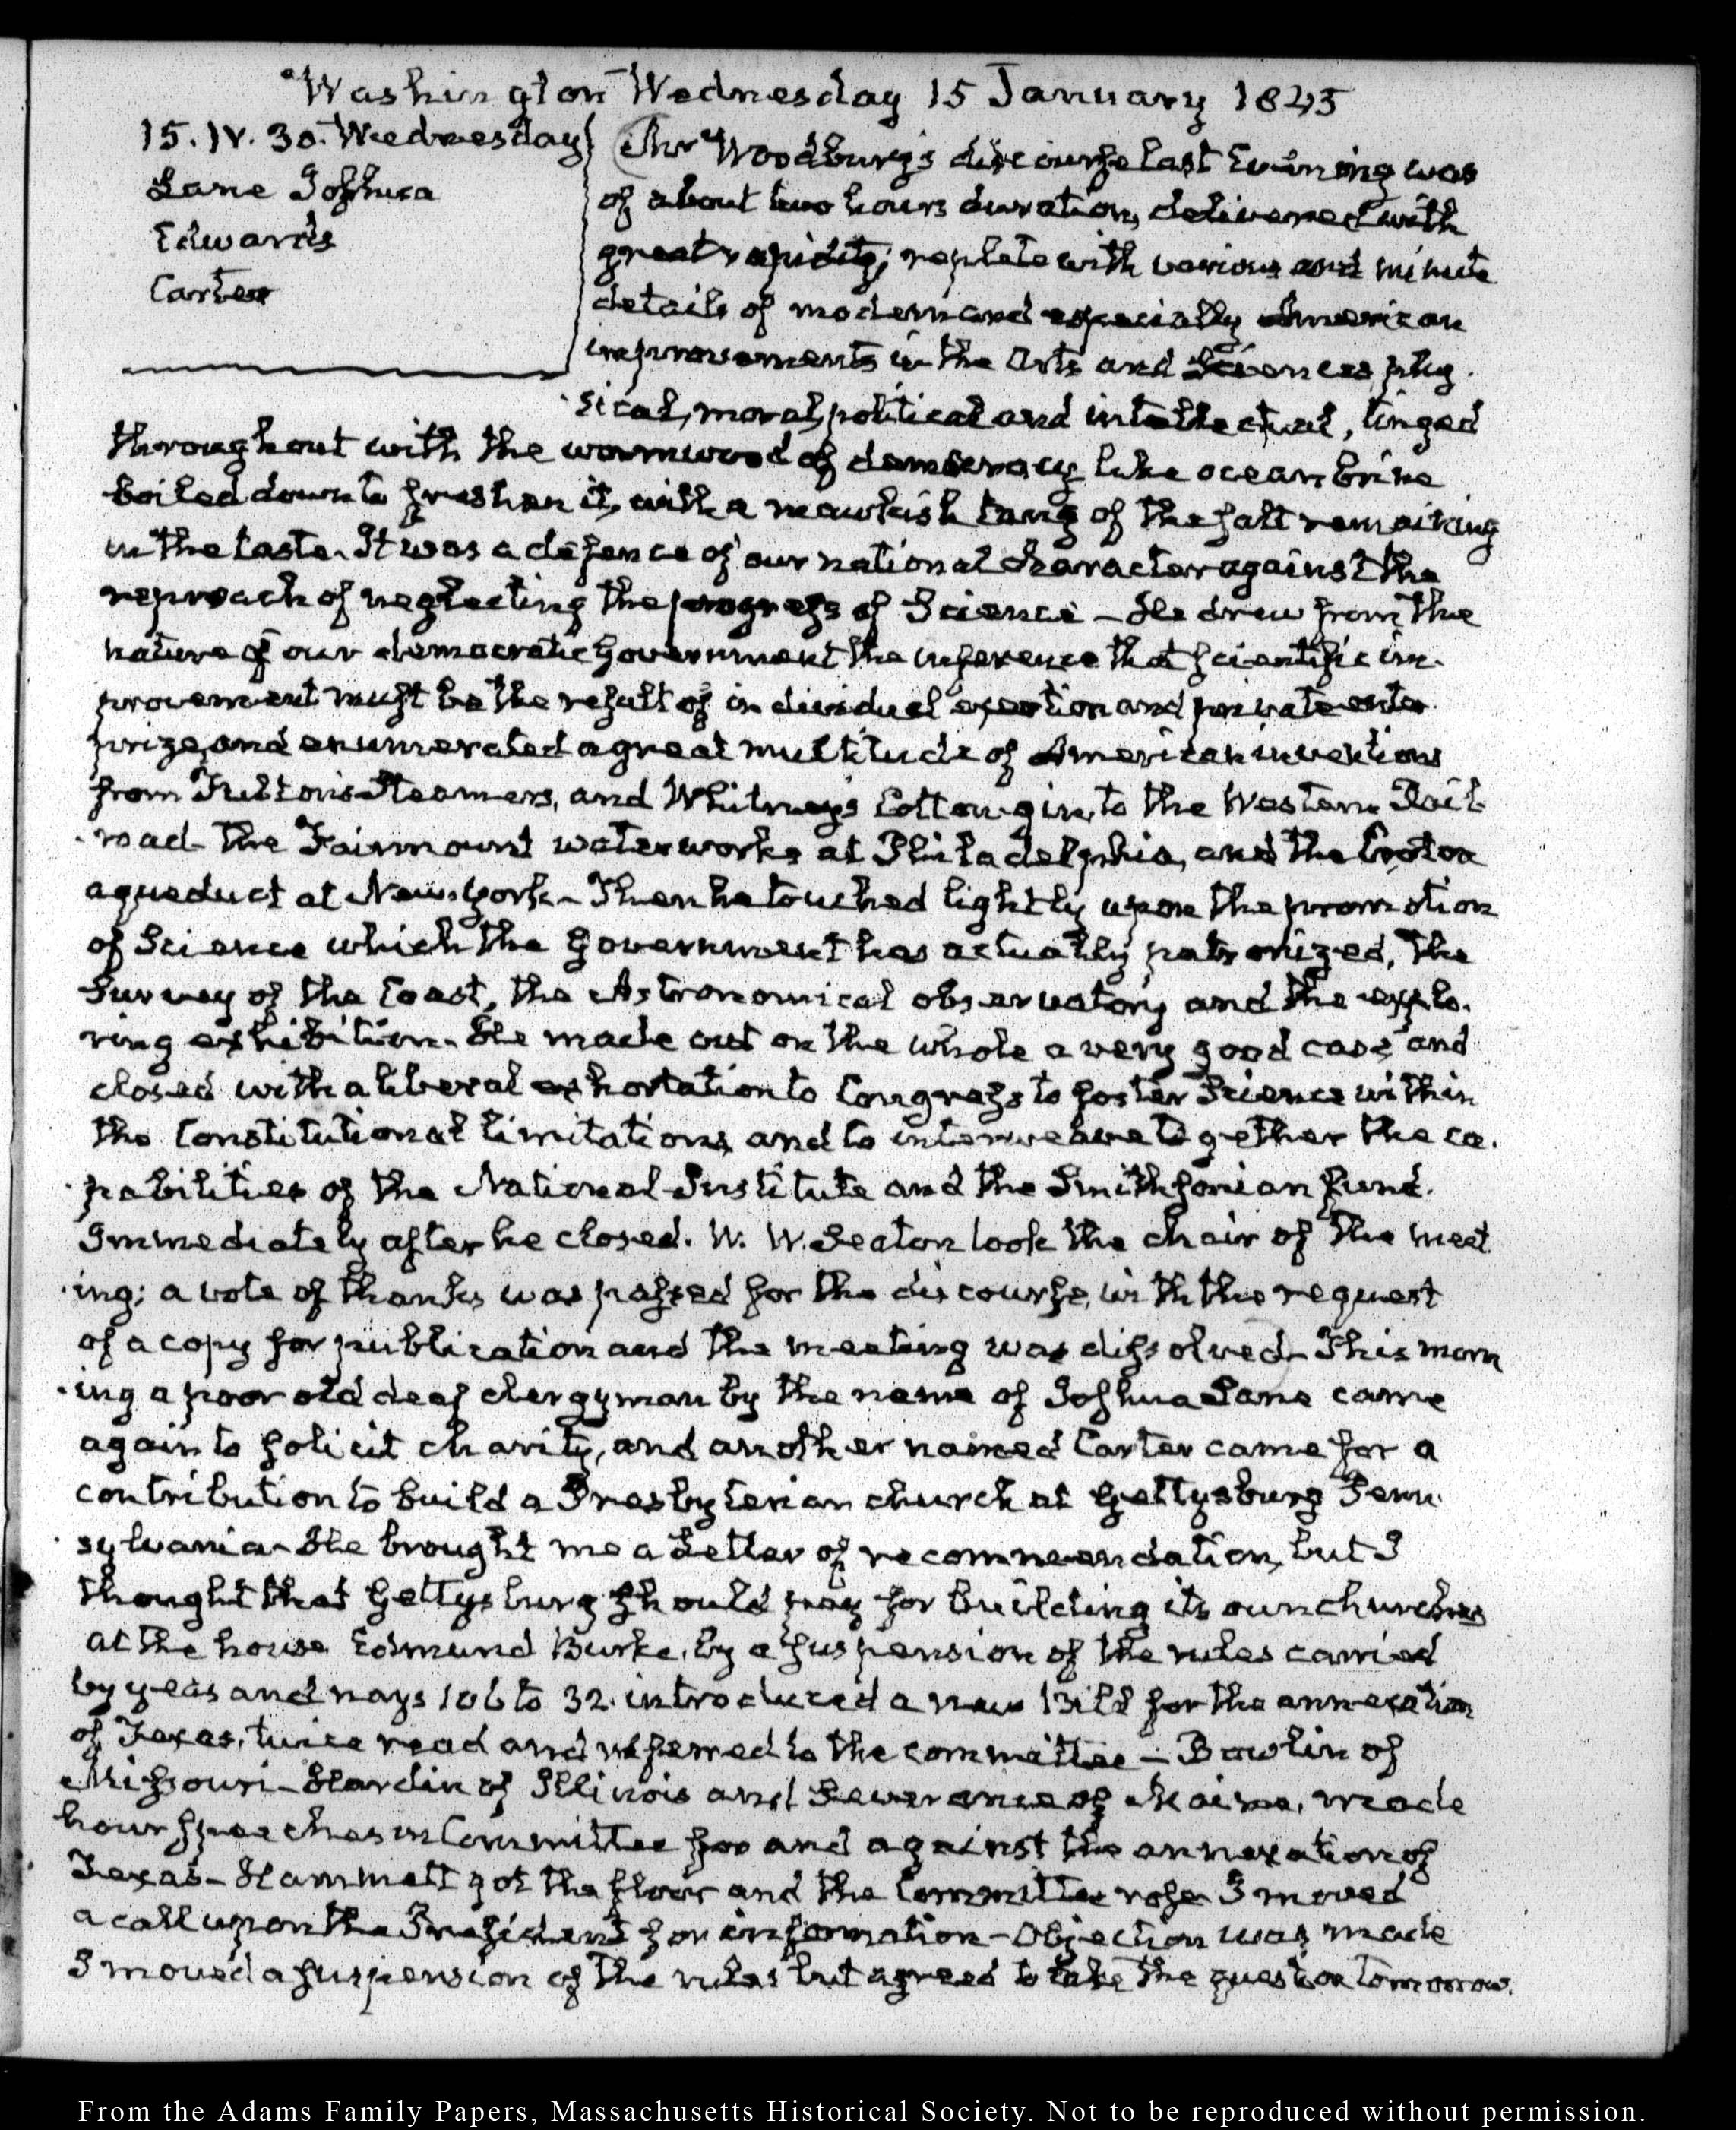 Washington Wednesday 15 January 1845
15. IV. 30. Wednesday
Lane Joshua
Edwards
Carter
Mr Woodbury's discourse last Evening was
of about two hours duration, delivered with
great rapidity; replete with various and minute
details of modern and especially American
improvements in the Arts and Sciences phy-
sical, moral, political and intellectual, tinged
throughout with the wormwood of democracy like ocean brine
boiled down to freshen it, with a mawkish tang of the salt remaining
in the taste. It was a defence of our national character against the
reproach of neglecting the progress of Science – He drew from the
nature of our democratic government the inference that scientific im-
provement must be the result of individual exertion and private enter-
prize, and enumerated a great multitude of American inventions
from Fulton's Steamers, and Whitney's Cotton-gin, to the Western Rail-
road – the Fairmount waterworks at Philadelphia, and the Croton
aqueduct at New-York – Then he touched lightly upon the promotion
of Science which the Government has actually patronized, the
Survey of the Coast, the Astronomical observatory and the explo-
ring exhibition. He made out on the whole a very good case and
closed with a liberal exhortation to Congress to foster Science within
the Constitutional limitations, and to interweave together the ca-
pabilities of the National Institute and the Smithsonian fund.
Immediately after he closed. W. W. Seaton took the chair of the meet-
ing; a vote of thanks was passed for the discourse, with the request
of a copy for publication and the meeting was dissolved – This morn-
ing a poor old deaf clergyman by the name of Joshua Lane came
again to solicit charity, and another named Carter came for a
contribution to build a Presbyterian church at Gettysburg Penn-
sylvania – He brought me a Letter of recommendation, but I
thought that Gettysburg should pay for building its own churches
at the house Edmund Burke, by a suspension of the rules carried
by yeas and nays 106 to 32. introduced a new Bill for the annexation
of Texas, twice read and referred to the committee – Bowlin of
Missouri – Hardin of Illinois and Severance of Maine, made
hour speeches in Committee for and against the annexation of
Texas – Hammett got the floor and the Committee rose – I moved
a call upon the President for information – Objection was made
I moved a suspension of the rules but agreed to take the question tomorrow.
From the Adams Family Papers, Massachusetts Historical Society. Not to be reproduced without permission.